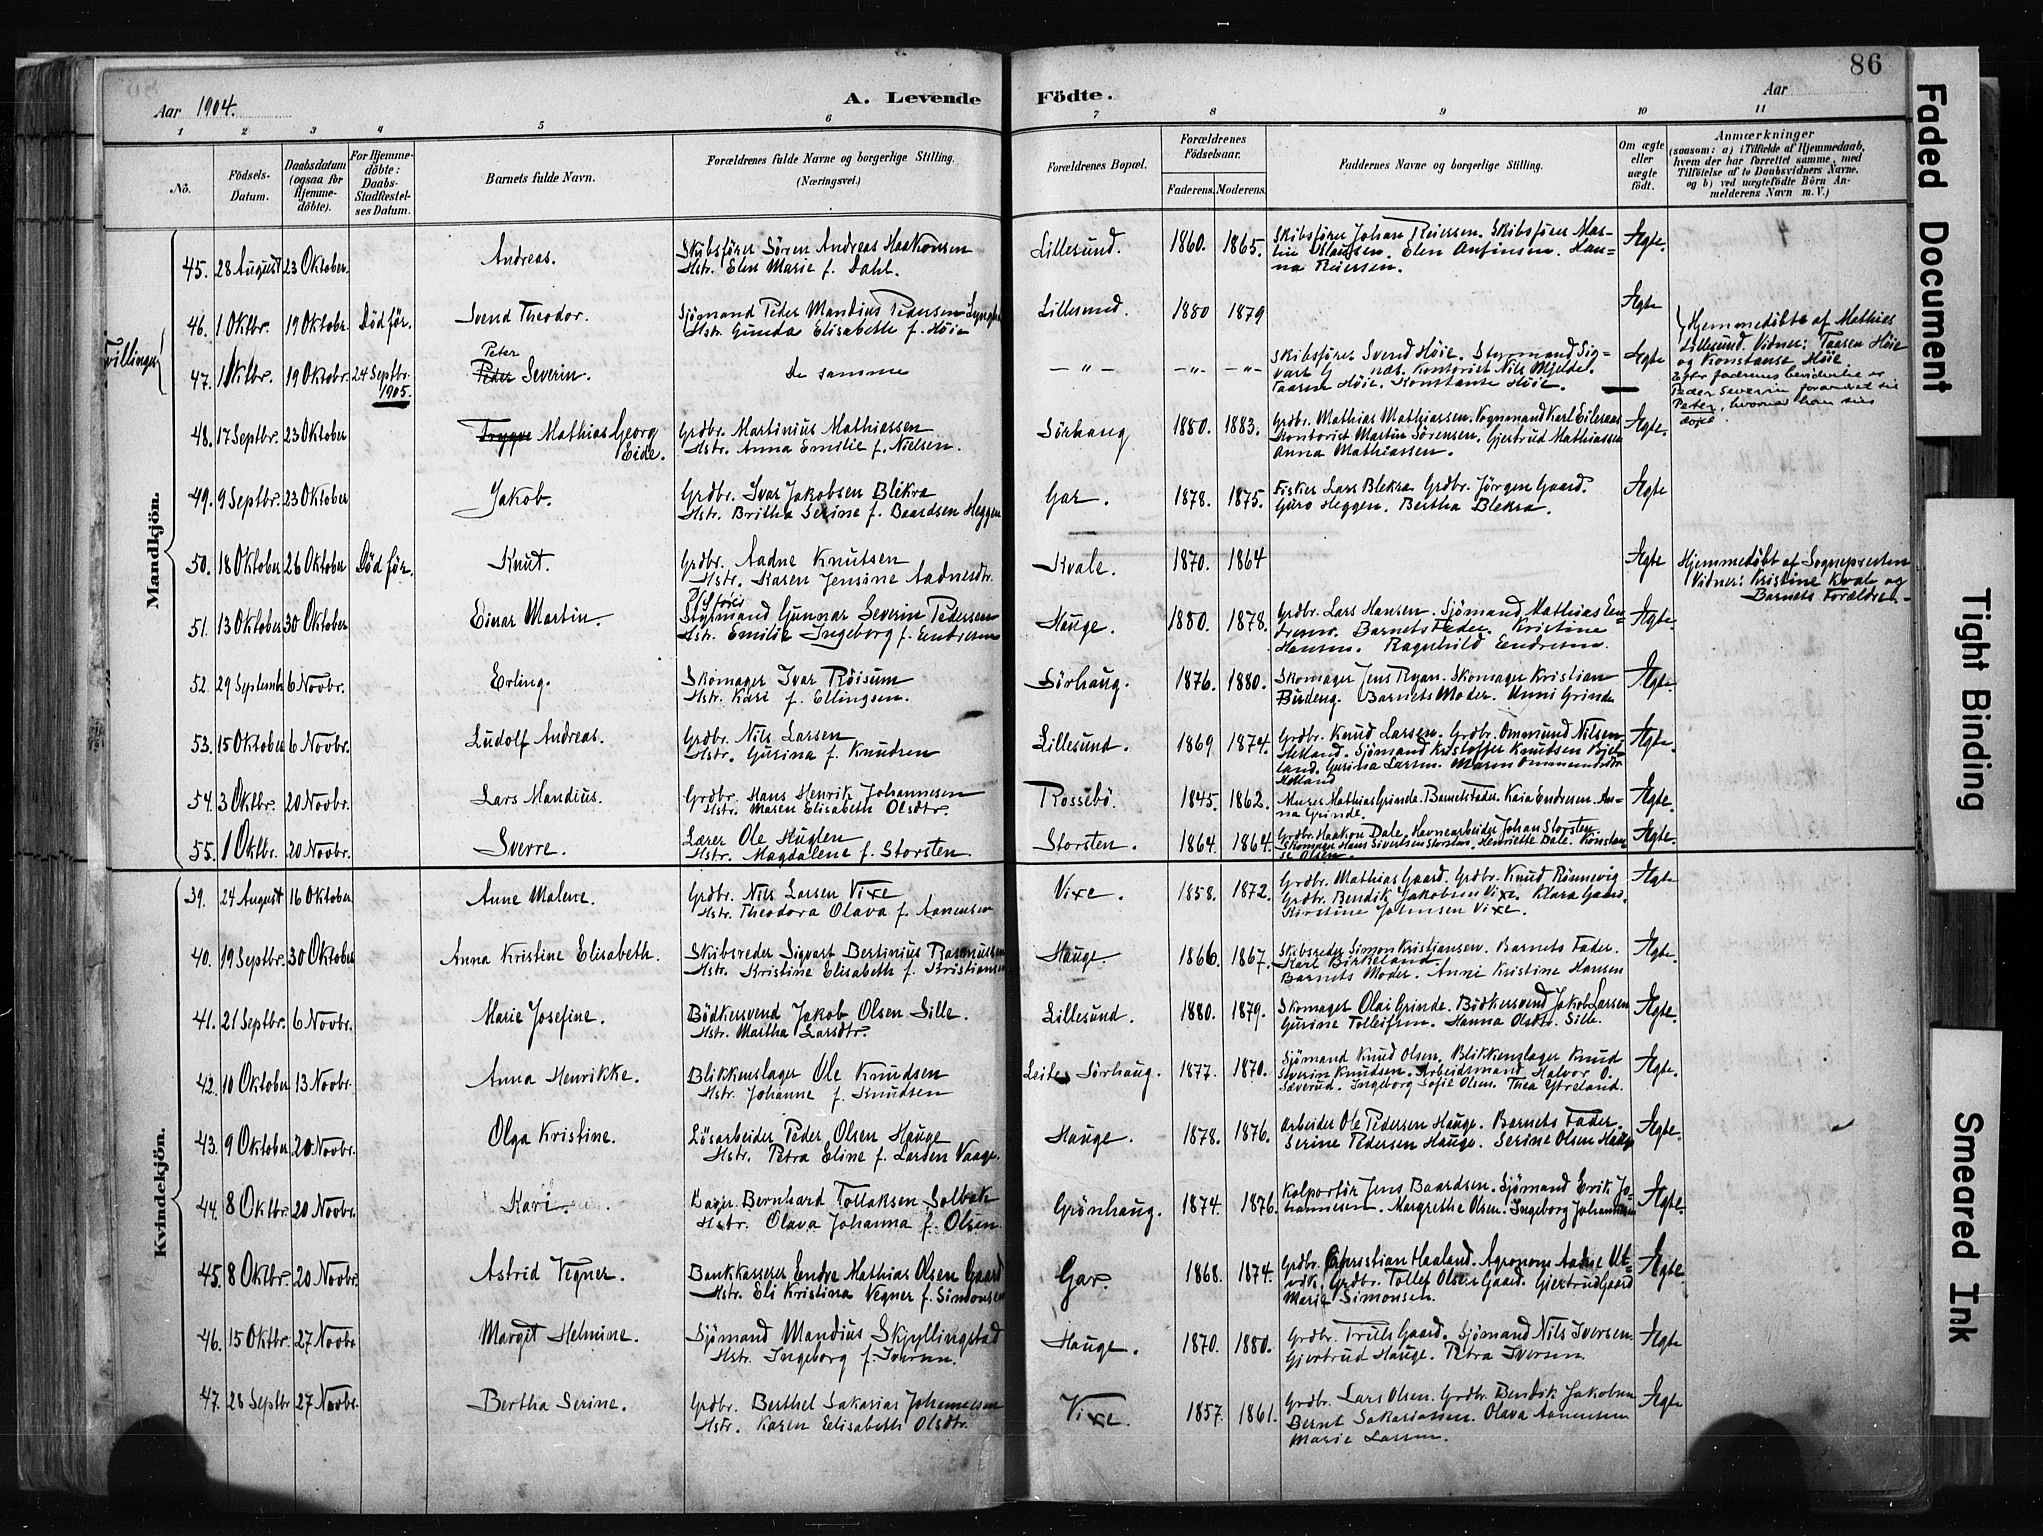 86
Aar 1904.
A. Levende Födte.
Aar
1 2 3 4 5 6 7 8 9 10 11
No.
Födsels-Datum.
Daabsdatum (ogsaa for Hjemme-döbte).
For Hjemme-döbte: Daabs-Stadfæstel-ses Datum.
Barnets fulde Navn.
Forældrenes fulde Navne og borgerlige Stilling.
(Næringsvei.)
Forældrenes Bopæl.
Forældrenes Födselsaar.
Faderens. Moderens.
Faddernes Navne og borgerlige Stilling.
Om ægte eller uægte födt.
Anmærkninger
(saasom: a) i Tilfælde af Hjemmedaab,
hvem der har forrettet samme, med
Tilföielse af to Daabsvidners Navne.
og b) ved uægtefödte Börn An-
melderens Navn m. V.)
Mandkjön.
45. 28 August 23 Oktober. Andreas. Skibsfører Søren Andreas Haakonsen
Hstr. Elen Marie f. Dahl. Lillesund. 1860. 1865. Skibsfører Johan Reiersen. Skibsfører Mar-
tin Elen Anfinsen. Han-
na Reiersen. Ægte.
Tvillinger
46. 1 Oktbr. 19 Oktobr. Død før. Svend Theodor. Sjömand Peder Mandius Pedersen
Hstr. Gunda Elisabeth f. Høie Lillesund. 1880 1879 Ægte
47. 1 Oktbr. 19 Oktobr. 24 Septbr. 1905. Peter
Peder Severin. De samme — " — — " — — " — Skibsfører Svend Høie. Styrmand Sig-
vart Kontorist Nils Mjelde.
Taasen Høie. Konstanse Høie. Ægte
Hjemmedøbte af Mathias
Lillesund. Vidner: Taasen Høie
og Konstanse Høie
Efter faderens
Peder Severin forandret til
Peter, hvornær han sies
døpt.
48. 17 Septbr. 23 Oktober Trygve Mathias Georg
Eide. Grdbr. Martinius Mathiassen
Hstr. Anna Emilie f. Nielsen. Sörhaug 1880. 1883. Grdbr. Mathias Mathiassen. Vognmand Karl Eileraas
Kontorist Martin Sørensen. Gjertrud Mathiassen
Anna Mathiassen. Ægte.
49. 9 Septbr. 23 Oktober Jakob. Grdbr. Ivar Jakobsen Blikra
Hstr. Britha Serine f. Baardsen Heggen Gar. 1878. 1875. Fisker Lars Blekra. Grdbr. Jørgen Gaard.
Guro Heggen. Bertha Blekra. Ægte
50. 18 Oktober 26 Oktober Död før. Knut. Grdbr. Aadne Knutsen
Hstr. Karen Jensine Aadnesdtr. Kvale. 1870. 1864 Ægte Hjemmedøbt af Sognepresten
Vidner: Kristine Kvale og
Barnets Forældre.
51. 13 Oktober 30 Oktober Einar Martin. Styrmand Gunnar Severin Pedersen
Hstr. Emilie Ingeborg f. Endresen Hauge. 1880. 1878. Grdbr. Lars Hansen. Sjömand Mathias En-
dresen. Barnets Fader. Kristine
Hansen. Ragnhild Endresen. Ægte.
52. 29 Septembr 6 Novbr. Erling. Skomager Ivar Røisum
Hstr. Kari f. Ellingsen. Sörhaug. 1876. 1880. Skomager Jens Ryan. Skomager Kristian
Budeng. Barnets Moder. Unni Grinde Ægte.
53. 15 Oktober 6 Novbr. Ludolf Andreas. Grdbr. Nils Larsen
Hstr. Gurina f. Knudsen Lillesund. 1869 1874. Grdbr. Knud Larsen. Grdbr. Ommund Nilsen
Hetland. Sjömand Kristoffer Knudsen Bjel-
land. Gurina Larsen. Maren Ommundsdtr
Hetland Ægte.
54. 3 Oktbr. 20 Novbr. Lars Mandius. Grdbr. Hans Henrik Johannesen
Hstr. Maren Elisabeth Olsdtr. Rossebö. 1845. 1862. Murer Mathias Grinde. Barnets Fader. Kaia Endresen. An-
na Grinde. Ægte.
55. 1 Oktbr. 20 Novbr. Sverre. Lærer Ole Huglen
Hstr. Magdalene f. Storsten. Storsten. 1864. 1864. Grdbr. Haakon Dale. Havnearbeider Johan Storsten.
Skomager Hans Sivertsen Storsten. Henriette Dale. Konstan-
se Olsen. Ægte.
Kvindekjön.
39. 24 August 16 Oktober Anne Malene. Grdbr. Nils Larsen Vixe
Hstr. Theodora Olava f. Aanensen Vixe. 1858. 1872. Grdbr. Mathias Gaard. Grdbr. Knud Rönnevig
Grdbr. Bendik Jakobsen Vixe. Klara Gaard.
Kirstine Johnsen Vixe. Ægte
40. 19 Septbr. 30 Oktober Anna Kristine Elisabeth. Skibsreder Sigvart Bertinius Rasmussen
Hstr. Kristine Elisabeth f. Kristiansen Hauge. 1866. 1867. Skibsreder Simon Kristiansen. Barnets Fader.
Karl Birkeland.
Barnets Moder. Anne Kristine Hansen Ægte.
41. 21 Septbr. 6 Novbr. Marie Josefine. Bödkersvend Jakob Olsen Sille.
Hstr. Martha Larsdtr. Lillesund. 1880. 1879. Skomager Olai Grinde. Bödkersvend Jakob Larsen
Gurine Tolleifsen. Hanna Olsdtr. Sille. Ægte.
42. 10 Oktober 13 Novbr. Anna Henrikke. Blikkenslager Ole Knudsen
Hstr. Johanne f. Knudsen Leite, Sörhaug. 1877. 1870. Sjömand Knud Olsen. Blikkenslager Knud
Severin Knudsen. Arbeidsmand Halvor O.
Sæverud. Ingeborg Sofie Olsen. Thea Ytreland. Ægte.
43. 9 Oktober 20 Novbr. Olga Kristine. Løsarbeider Peder Olsen Hauge
Hstr. Petra Eline f. Larsen Vaage. Hauge. 1878. 1876. Arbeider Ole Pedersen Hauge. Barnets Fader.
Serine Pedersen Hauge. Serine Olsen Hauge Ægte.
44. 8 Oktbr. 20 Novbr. Kari. Bager Bernhard Tollaksen Solbak
Hstr. Olava Johanna f. Olsen Grönhaug. 1874. 1876. Kolportör Jens Baardsen. Sjömand Erik Jo-
hannesen. Margrethe Olsen. Ingeborg Johannesen Ægte.
45. 8 Oktbr. 20 Novbr. Astrid Vegner. Bankkasserer Endre Mathias Olsen Gaard
Hstr. Eli Kristina Vegner f. Simonsen Gar. 1868. 1874. Grdbr. Christian Haaland. Agronom Aadne Ut-
vik. Grdbr. Tollef Olsen Gaard. Gjertrud Gaard
Marie Simonsen. Ægte
46. 15 Oktbr. 27 Novbr. Margit Helmine. Sjömand Mandius Skjyllingstad
Hstr. Ingeborg f. Iversen. Hauge. 1870. 1880. Grdbr. Truls Gaard. Sjömand Nils Iversen.
Gjertrud Hauge. Petra Iversen Ægte
47. 28 Septbr 27 Novbr. Bertha Serine. Grdbr. Berthel Sakarias Johannesen
Hstr. Karen Elisabeth Olsdtr. Vixe. 1857. 1861. Grdbr. Lars Olsen. Grdbr. Bendik Jakobsen
Bernt Sakariassen. Olava Aanensen
Marie Larsen. Ægte
Faded Document
Tight Binding
Smeared Ink